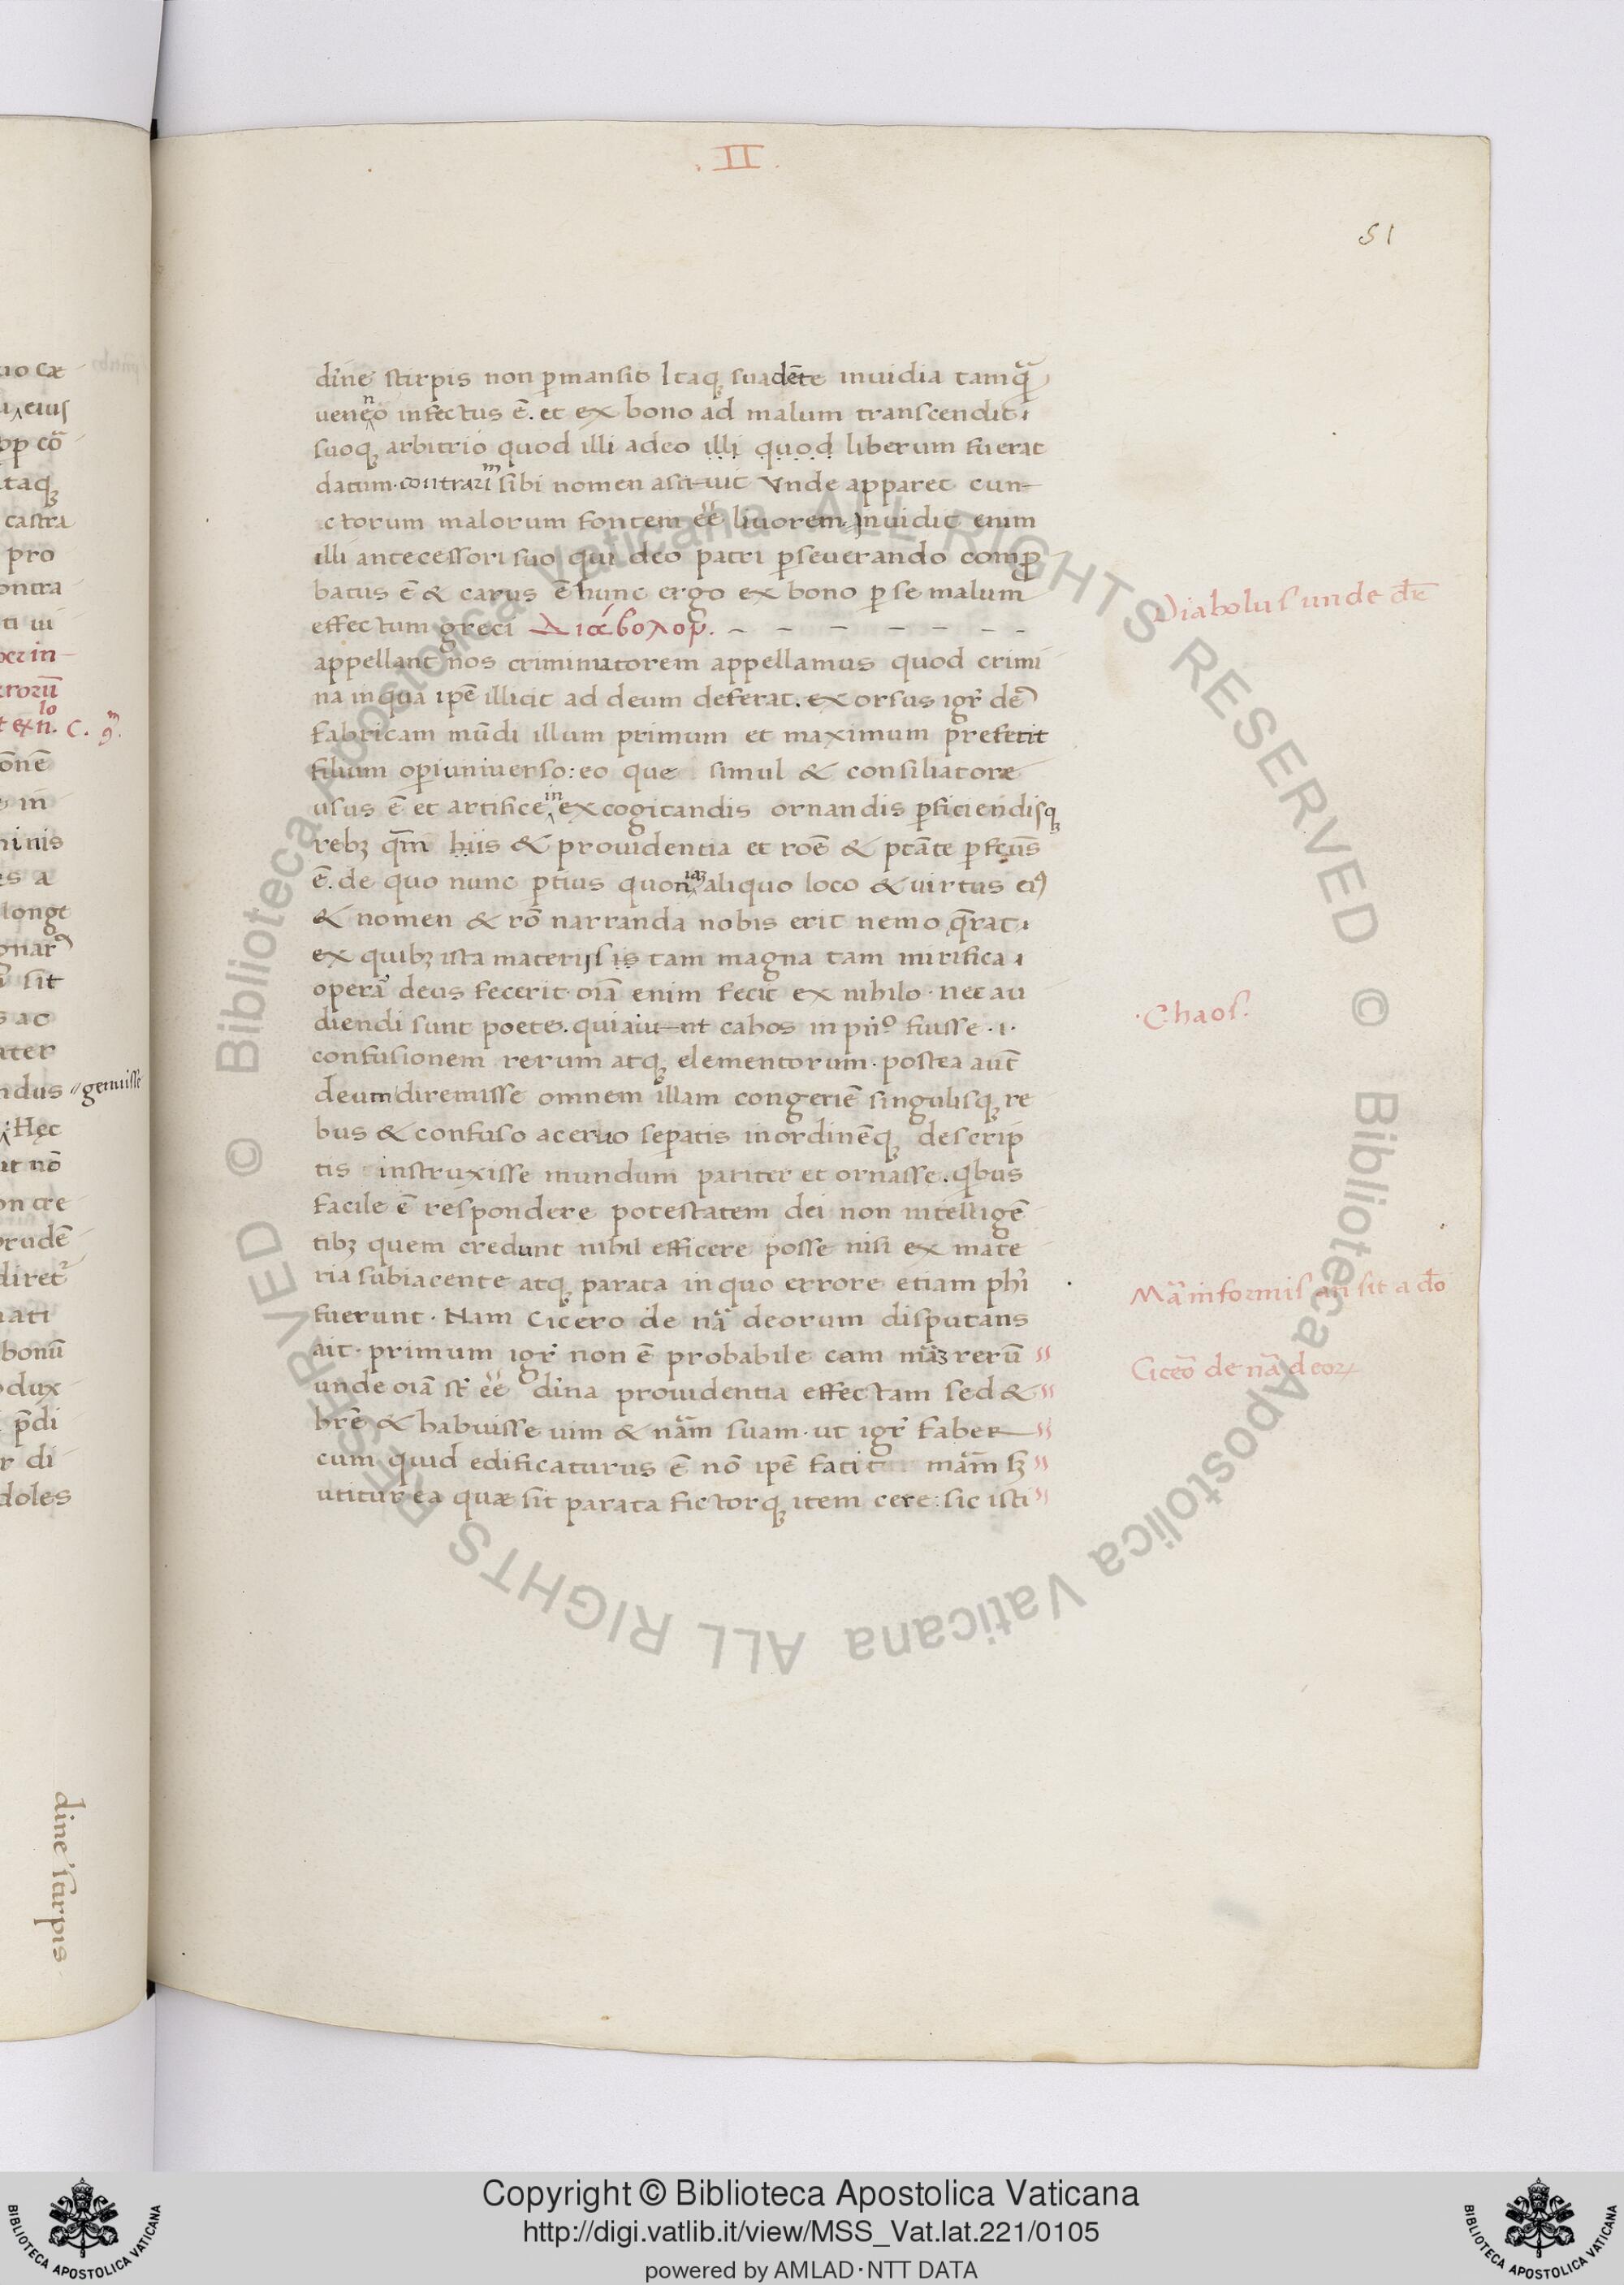 .II.
51
dīne stirpis non ꝑmansit Itaqꝫ suadēte inuidia tamq̃
ueneno infectus ē. et ex bono ad malum transcendit.
suoqꝫ arbitrio quod illi adeo illi quod liberum fuerat
datum. contrariū sibi nomen asciuit Vnde apparet cun-
ctorum malorum fontem eē liuorem. Inuidit enim
illi antecessori suo qui deo patri ꝑseuerando comꝓ
batus ē & carus ē hunc ergo ex bono ꝑ se malum
effectum greci Διάβολομ. – – – – – – –
appellant nos criminatorem appellamus quod crimi
na in qua ipē illicit ad deum deferat. exorsus igr̄ de᷒
fabricam mūdi illum primum et maximum prefecit
filium oꝑi uniuerso: eo que simul & consiliatore
usus ē et artifice in excogitandis ornandis ꝑficiendisqꝫ
rebꝫ qm̄ hiis & prouidentia et roē & ptāte ꝑfectus
ē. de quo nunc ꝑtius quoniaꝫ aliquo loco & uirtus eiꝰ
& nomen & rō narranda nobis erit nemo q̄rat.
ex quibꝫ ista materijs is tam magna tam mirifica
opera deus fecerit. oīa enim fecit ex nihilo. nec au
diendi sunt poete. qui aiu-nt cahos in pn̄º fuisse .i.
confusionem rerum atqꝫ elementorum. postea aut̄
deum diremisse omnem illam congeriē singulisqꝫ re
bus & confuso aceruo seꝑatis inordinēqꝫ descrip
tis instruxisse mundum pariter et ornasse. Qbus
facile ē respondere potestatem dei non intelligē
tibꝫ quem credunt nihil efficere posse nisi ex mate
ria subiacente atqꝫ parata in quo errore etiam phī
fuerunt. Nam Cicero de nā deorum disputans
ait. primum igr̄ non ē probabile eam māꝫ rerū
unde oīa st̄ eē dīna prouidentia effectam sed &
br̄e & habuisse uim & nām suam. ut igr̄ faber
cum quid edificaturus ē nō ipē facit mām sꝫ
utitur ea quæ sit parata fictorqꝫ item cere: sic isti
Diabolus unde dr̄
.Chaos.
Mā informis an sit a do
Ciceo de nā deoꝝ
genuisse
dine stirpis
© Biblioteca Apostolica Vaticana ALL RIGHTS RESERVED
© Biblioteca Apostolica Vaticana ALL RIGHTS RESERVED
BIBLIOTECA APOSTOLICA VATICANA
Copyright © Biblioteca Apostolica Vaticana
http://digi.vatlib.it/view/MSS_Vat.lat.221/0105
powered by AMLAD·NTT DATA
BIBLIOTECA APOSTOLICA VATICANA